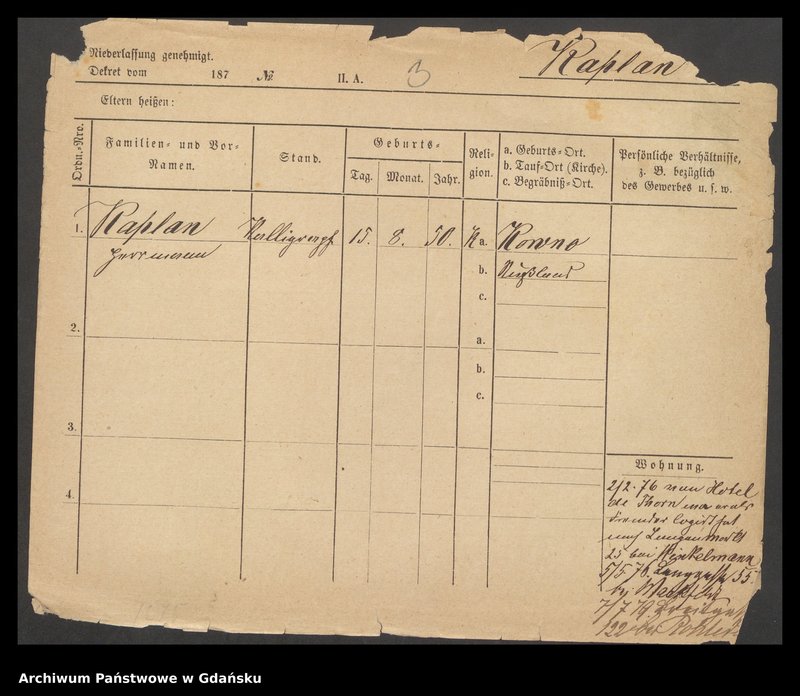 Niederlassung genehmigt.
Dekret vom 187 No. II. A. 3
Kaplan
Eltern heißen:
Ordn.-Nro.
Familien- und Vor-
Namen.
Stand.
Geburts-
Tag. Monat. Jahr.
Reli-
gion.
a. Geburts-Ort.
b. Tauf-Ort (Kirche).
c. Begräbniß-Ort.
Persönliche Verhältnisse,
z. B. bezüglich
des Gewerbes u. s. w.
1. Kaplan Kalligraph 15. 8. 50. K a. Kowno
Herrmann
b. Rußland
c.
2. a.
b.
c.
3.
4.
Wohnung.
2/2. 76 vom Hotel
de Thorn wo er als
Fremder logirt hat
nach Langenmarkt
25 bei Winkelmann
5/5. 76. Langgasse 55.
by
7/7 79 Breitgasse
122 bei
Archiwum Państwowe w Gdańsku